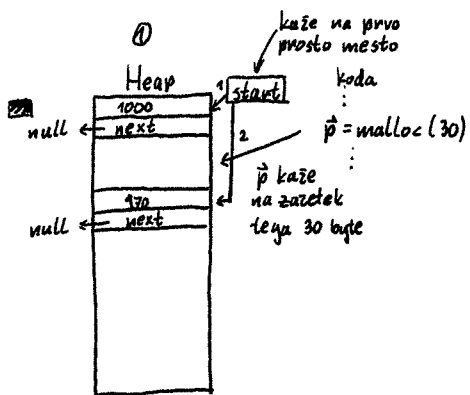 ①
kaže na prvo
prosto mesto
Heap
koda
1
start
1000
null
next
2
p⃗ = malloc (30)
p⃗ kaže
na začetek
tega 30 byte
970
null
next